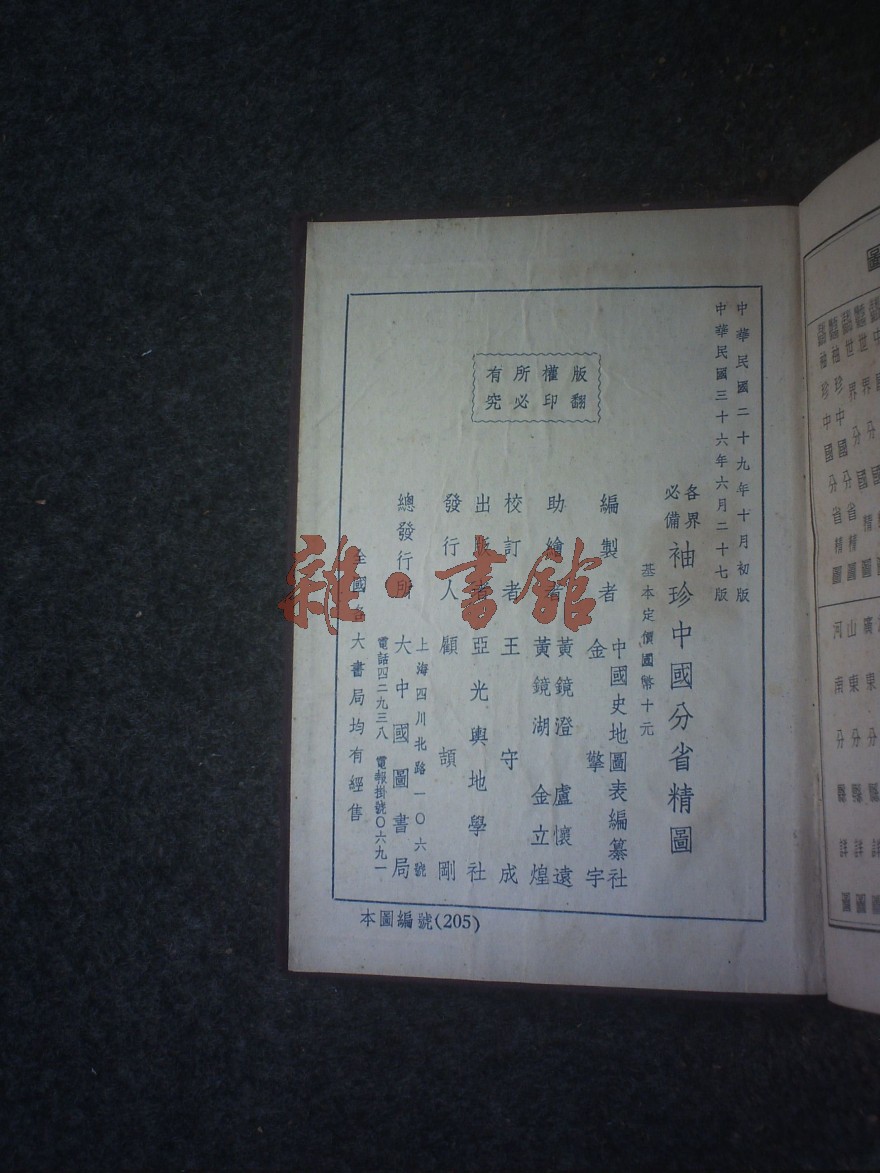 中華民國二十九年十月初版
中華民國三十六年六月二十七版
各界必備 袖珍中國分省精圖
基本定價國幣十元
編製者 中國史地圖表編纂社 金擎宇
助繪者 黃鏡澄 盧懷遠 黃鏡湖 金立煌
校訂者 王守成
出版者 亞光輿地學社
發行人 顧頡剛
總發行所 大中國圖書局
上海四川北路一〇六號
電話四二九三八 電報掛號〇六九一
全國各大書局均有經售
版權所有
翻印必究
本圖編號(205)
雜·書館
圖
袖珍中國分省精圖
河南分縣詳圖
山東分縣詳圖